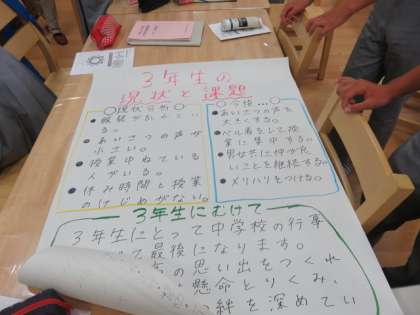 3年生の
現状と課題
○現状分析○
● 服装がみだれてい
る。
● あいさつの声が
小さい。
● 授業中ねている
人がいる。
● 休み時間と授業
のけじめがない。
○今後…○
● あいさつの声を
大きくする。
● ベル着をして授
業に集中する。
● 男女共に仲が良
いことを継続する。
● メリハリをつける。
3年生にむけて
3年生にとって中学校の行事
最後になります。
の思い出をつくれ
懸命とりくみ、
絆を深めてい